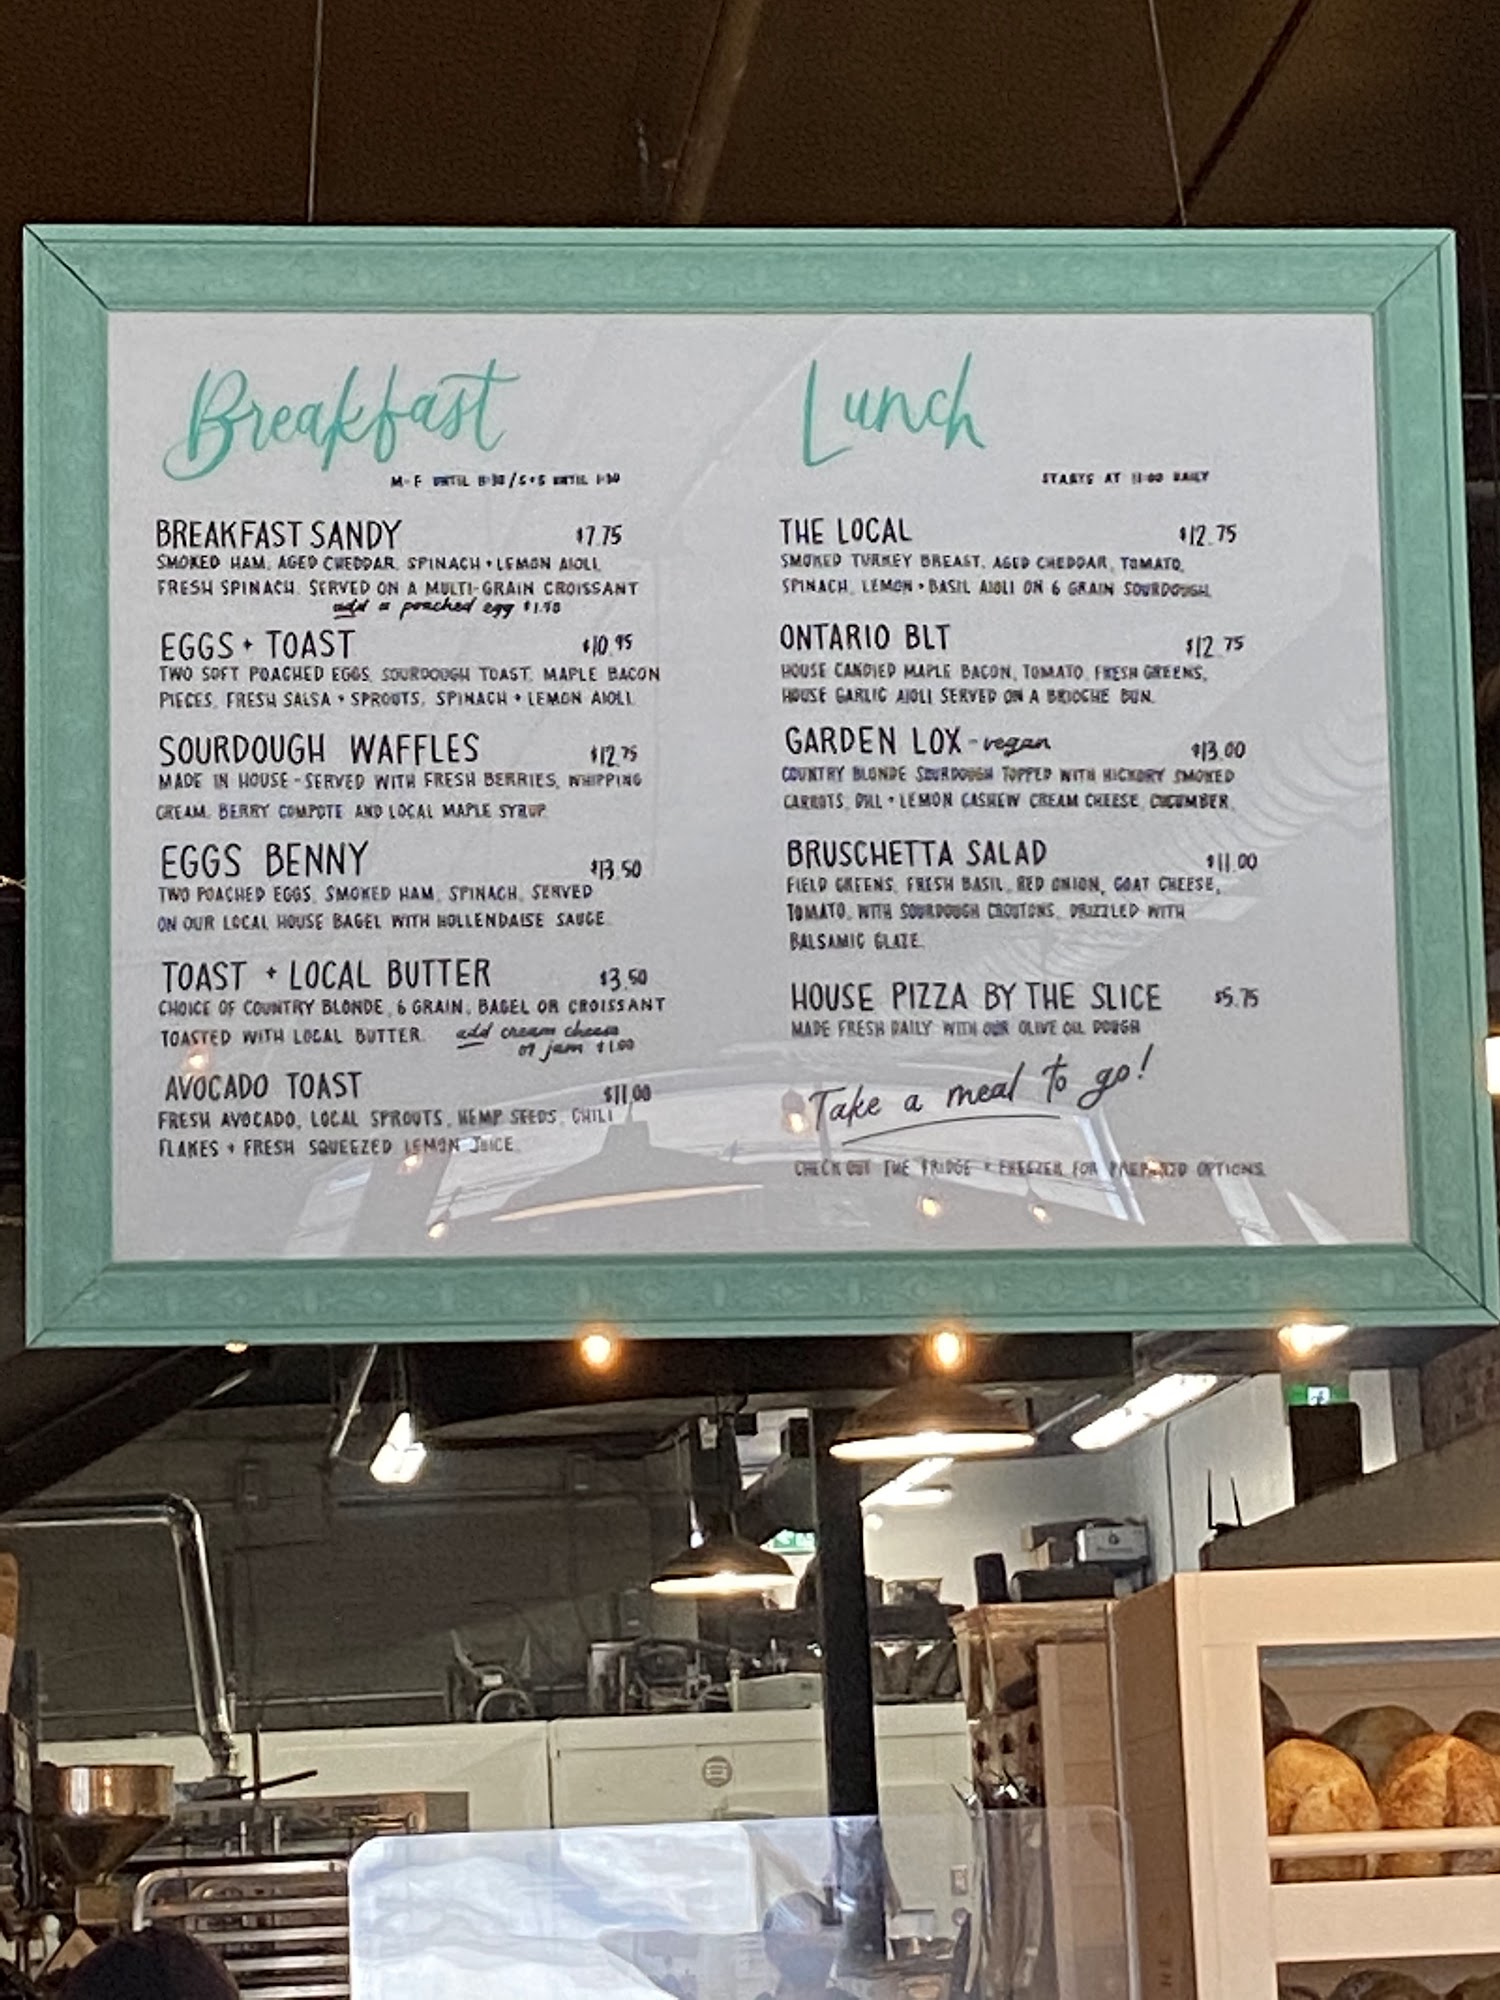 Breakfast
M-F UNTIL
BREAKFAST SANDY $7.75
SMOKED HAM, AGED CHEDDAR, SPINACH + LEMON AIOLI,
FRESH SPINACH. SERVED ON A MULTI-GRAIN CROISSANT
add a poached egg
EGGS + TOAST $10.95
TWO SOFT POACHED EGGS, SOURDOUGH TOAST, MAPLE BACON
PIECES, FRESH SALSA + SPROUTS, SPINACH + LEMON AIOLI.
SOURDOUGH WAFFLES $12.75
MADE IN HOUSE - SERVED WITH FRESH BERRIES, WHIPPING
CREAM, BERRY COMPOTE AND LOCAL MAPLE SYRUP.
EGGS BENNY $13.50
TWO POACHED EGGS, SMOKED HAM, SPINACH, SERVED
ON OUR LOCAL HOUSE BAGEL WITH HOLLENDAISE SAUCE.
TOAST + LOCAL BUTTER $3.50
CHOICE OF COUNTRY BLONDE, 6 GRAIN, BAGEL OR CROISSANT
TOASTED WITH LOCAL BUTTER. add cream cheese
or jam $1.00
AVOCADO TOAST $11.00
FRESH AVOCADO, LOCAL SPROUTS, HEMP SEEDS, CHILI
FLAKES + FRESH SQUEEZED LEMON JUICE.
Lunch
STARTS AT 11:00 DAILY
THE LOCAL $12.75
SMOKED TURKEY BREAST, AGED CHEDDAR, TOMATO,
SPINACH, LEMON + BASIL AIOLI ON 6 GRAIN SOURDOUGH.
ONTARIO BLT $12.75
HOUSE CANDIED MAPLE BACON, TOMATO, FRESH GREENS,
HOUSE GARLIC AIOLI SERVED ON A BRIOCHE BUN.
GARDEN LOX - vegan $13.00
COUNTRY BLONDE SOURDOUGH TOPPED WITH HICKORY SMOKED
CARROTS, DILL + LEMON CASHEW CREAM CHEESE, CUCUMBER.
BRUSCHETTA SALAD $11.00
FIELD GREENS, FRESH BASIL, RED ONION, GOAT CHEESE,
TOMATO, WITH SOURDOUGH CROUTONS, DRIZZLED WITH
BALSAMIC GLAZE.
HOUSE PIZZA BY THE SLICE $5.75
MADE FRESH DAILY WITH OUR OLIVE OIL DOUGH
Take a meal to go!
CHECK OUT THE FRIDGE + FREEZER FOR PREPARED OPTIONS.